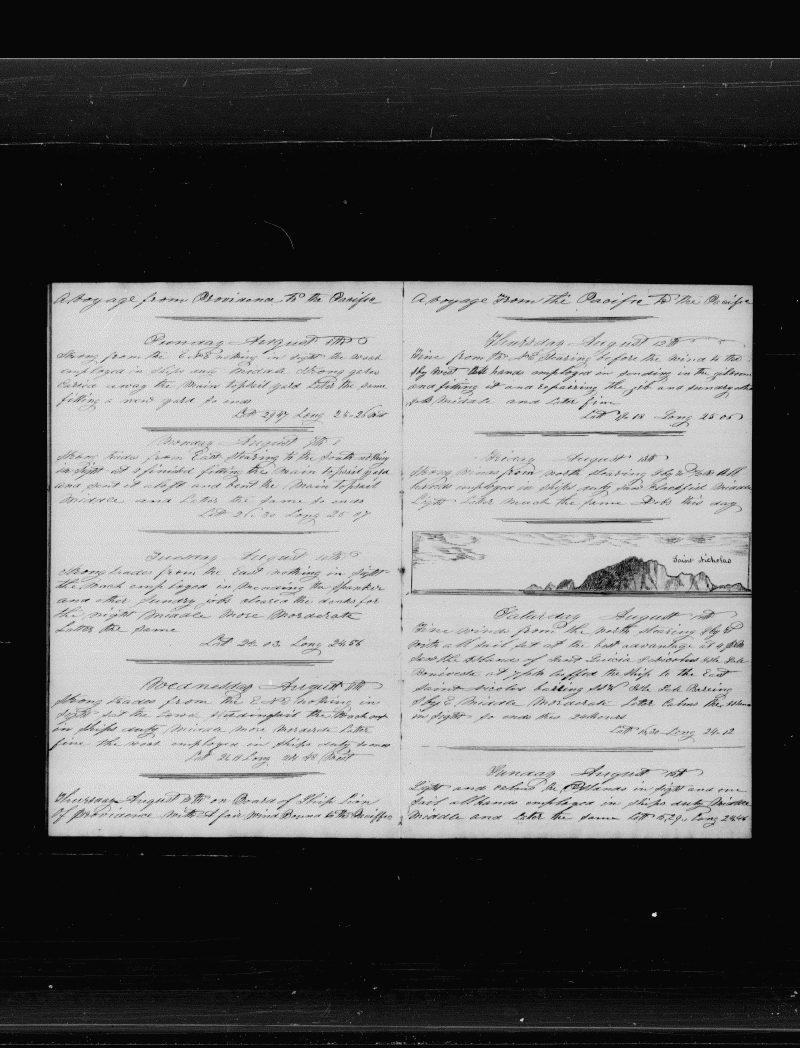 A voyage from Providence to the Pacific
Sunday August 8th
Strong from the ENE nothing in sight the watch
employed in ships duty Middle Strong gales
carried away the Main topsail yard Later the same
fitting a new yard so ends
Long 25-26
Monday August 9th
Strong trades from East stearing to the South nothing
in sight finished fitting the Main topsail yard
and sent it aloft and bent the Main topsail
Middle and Later the same so ends
Latt 26.30 Long 25-07
Tuesday August 10th
Strong trades from the East nothing in sight
the watch employed in mending the Spanker
and other sundry jobs cleared the decks for
the night Middle More Morderate
Later the same
Latt 24.03 Long 24.56
Wednesday August 11th
Strong trades from the ENE nothing in
sight set the Watch emp
in ships duty Middle more Morderate Later
fine the watch employed in Ships duty so ends
Long 24 48 West
Thursday August 12th on Board of Ship Lion
of Providence With A fair Wind Bound to the Paciffic
A voyage From the Pacific To the Pacific
Thursday August 12th
Fine from the NE Stearing before the wind to the
S by West hands employed in sending in the gibboom
and fitting it and repairing the gib and sundry other
jobs Middle and Later fine
Latt Long 25 05
Friday August 13th
Strong winds from North stearing S by E All
hands employed in ships duty Saw Blackfish Middle
Light Later much the same this day
Saint Nicholas
Saturday August 14th
Fine winds from the North Stearing S by E
With all sail set at the best advantage at 4
saw the Islands of Saint Lucia & Nicolas
at 7 luffed the ship to the East
Saint Nicolas bearing
S by E Middle Morderate Later Calms the Islands
in sight so ends this 24 hours
Latt 16.30 Long 24-12
Sunday August 15th
Light and calms the Islands in sight and one
sail all hands employed in ships duty
Middle and Later the same Latt 15,29 Long 24.46